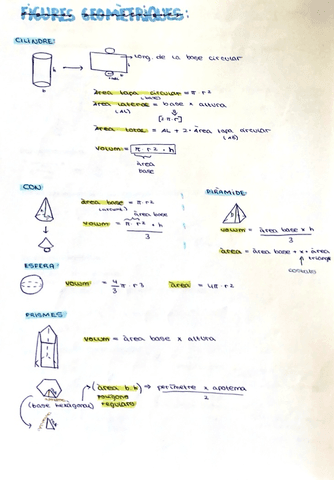 FIGURES GEOMÈTRIQUES:
CILINDRE:
h
→ larg. de la base circular
àrea tapa circular = π · r²
(base)
àrea lateral = base × altura
(AL)
[2π·r]
àrea total = AL + 2 · àrea tapa circular
(AB)
volum = π r² · h
àrea
base
CON
àrea base = π · r²
(circular)
àrea base
volum = π r² · h
3
PIRÀMIDE:
volum = àrea base × h
3
àrea = àrea base + x · àrea
triangle
costats
ESFERA
volum = 4/3 π · r³
àrea = 4π · r²
PRISMES
volum = àrea base × altura
(base hexagonal)
(àrea b.h)
polígons
regulars
⇒ perímetre × apotema
2